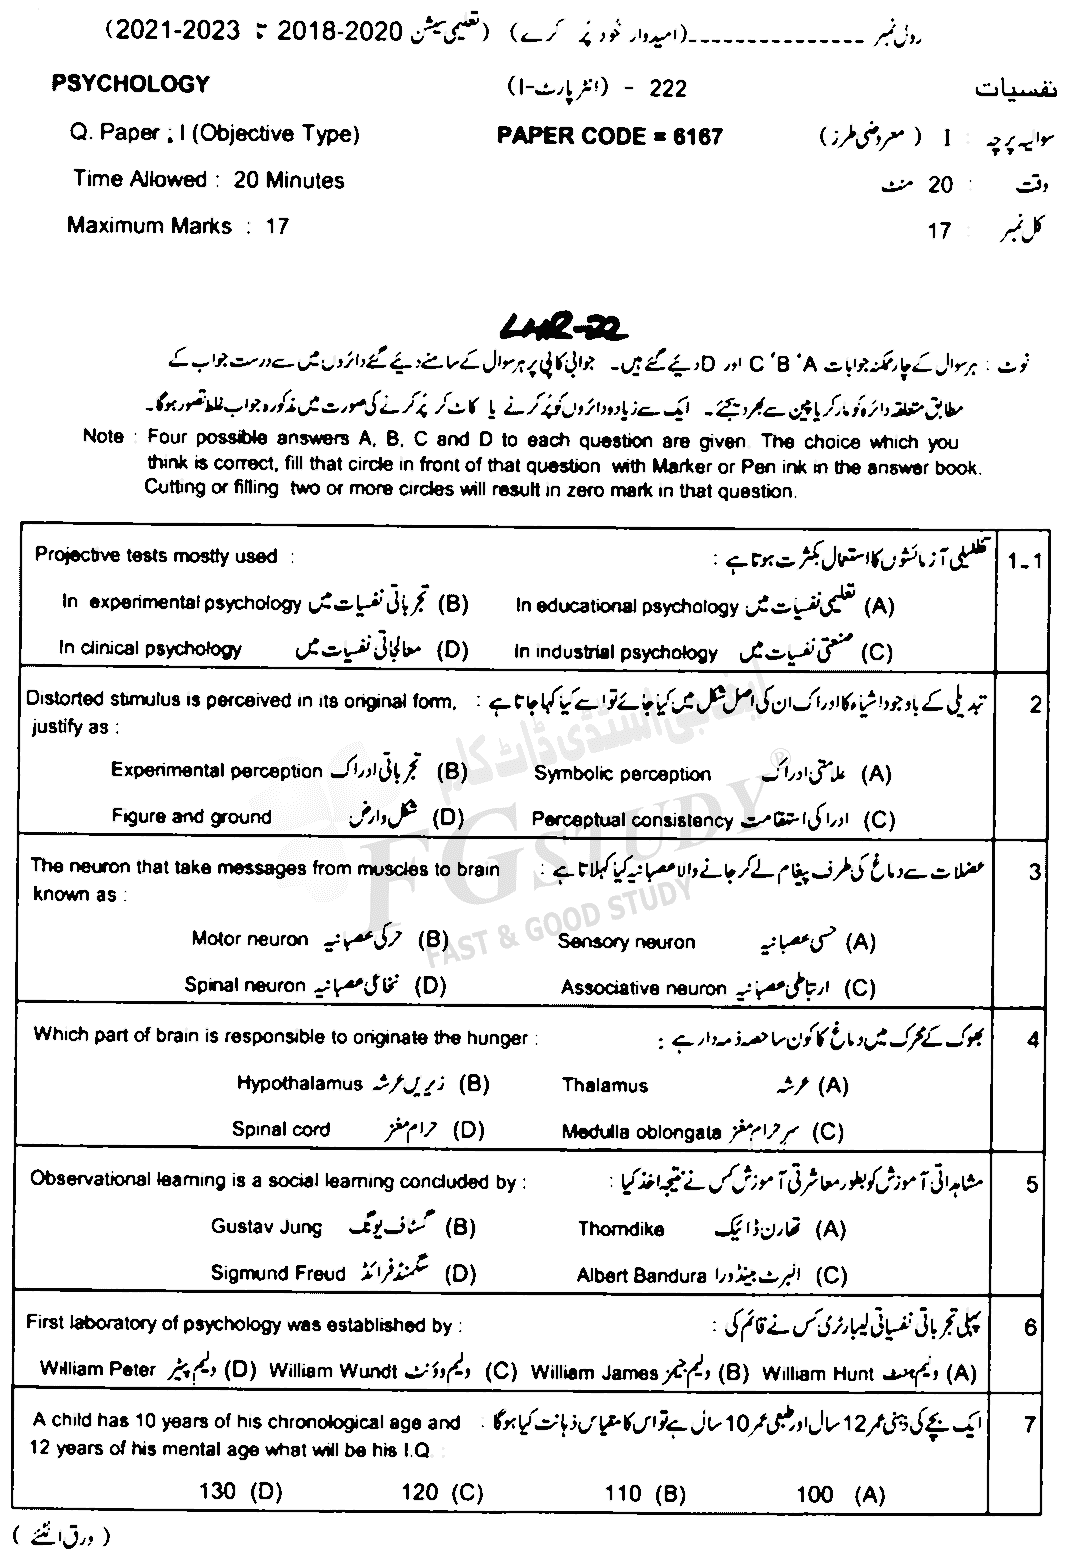 رولنمبر ________________(امیدوار خود پُر کرے) (تعلیمی سیشن 2020-2018 تا 2023-2021)
PSYCHOLOGY 222 - (انٹر پارٹ-I) نفسیات
Q. Paper : I (Objective Type) PAPER CODE = 6167 سوالیہ پرچہ : I (معروضی طرز)
Time Allowed : 20 Minutes وقت : 20 منٹ
Maximum Marks : 17 کل نمبر : 17
LHR-22
نوٹ : ہر سوال کے چار ممکنہ جوابات A ' B ' C اور D دیئے گئے ہیں۔ جوابی کاپی پر ہر سوال کے سامنے دیئے گئے دائروں میں سے درست جواب کے
مطابق متعلقہ دائرہ کو مارکر یا پین سے بھر دیجئے۔ ایک سے زیادہ دائروں کو پُر کرنے یا کاٹ کر پُر کرنے کی صورت میں مذکورہ جواب غلط تصور ہوگا۔
Note : Four possible answers A, B, C and D to each question are given. The choice which you
think is correct, fill that circle in front of that question with Marker or Pen ink in the answer book.
Cutting or filling two or more circles will result in zero mark in that question.
Projective tests mostly used : تظلیلی آزمائشوں کا استعمال بکثرت ہوتا ہے : 1-1
In experimental psychology تجرباتی نفسیات میں (B) In educational psychology تعلیمی نفسیات میں (A)
In clinical psychology معالجاتی نفسیات میں (D) In industrial psychology صنعتی نفسیات میں (C)
Distorted stimulus is perceived in its original form, تبدیلی کے باوجود اشیاء کا ادراک ان کی اصل شکل میں کیا جائے تو اسے کیا کہا جاتا ہے : 2
justify as :
Experimental perception تجرباتی ادراک (B) Symbolic perception علامتی ادراک (A)
Figure and ground شکل و ارض (D) Perceptual consistency ادراکی استقامت (C)
The neuron that take messages from muscles to brain عضلات سے دماغ کی طرف پیغام لے کر جانے والا عصبانیہ کیا کہلاتا ہے : 3
known as :
Motor neuron حرکی عصبانیہ (B) Sensory neuron حسی عصبانیہ (A)
Spinal neuron نخاعی عصبانیہ (D) Associative neuron ارتباطی عصبانیہ (C)
Which part of brain is responsible to originate the hunger : بھوک کے محرک میں دماغ کا کون سا حصہ ذمہ دار ہے : 4
Hypothalamus زیریں عرشہ (B) Thalamus عرشہ (A)
Spinal cord حرام مغز (D) Medulla oblongata سر حرام مغز (C)
Observational learning is a social learning concluded by : مشاہداتی آموزش کو بطور معاشرتی آموزش کس نے نتیجہ اخذ کیا : 5
Gustav Jung گستاف یونگ (B) Thorndike تھارن ڈائیک (A)
Sigmund Freud سگمنڈ فرائڈ (D) Albert Bandura البرٹ بینڈورا (C)
First laboratory of psychology was established by : پہلی تجرباتی نفسیاتی لیبارٹری کس نے قائم کی : 6
William Peter ولیم پیٹر (D) William Wundt ولیم وونٹ (C) William James ولیم جیمز (B) William Hunt ولیم ہنٹ (A)
A child has 10 years of his chronological age and ایک بچے کی ذہنی عمر 12 سال اور طبعی عمر 10 سال ہے تو اس کا مقیاس ذہانت کیا ہوگا : 7
12 years of his mental age what will be his I.Q
130 (D) 120 (C) 110 (B) 100 (A)
(ورق الٹئے)
ایف جی اسٹڈی ڈاٹ کام
FG STUDY ®
FAST & GOOD STUDY